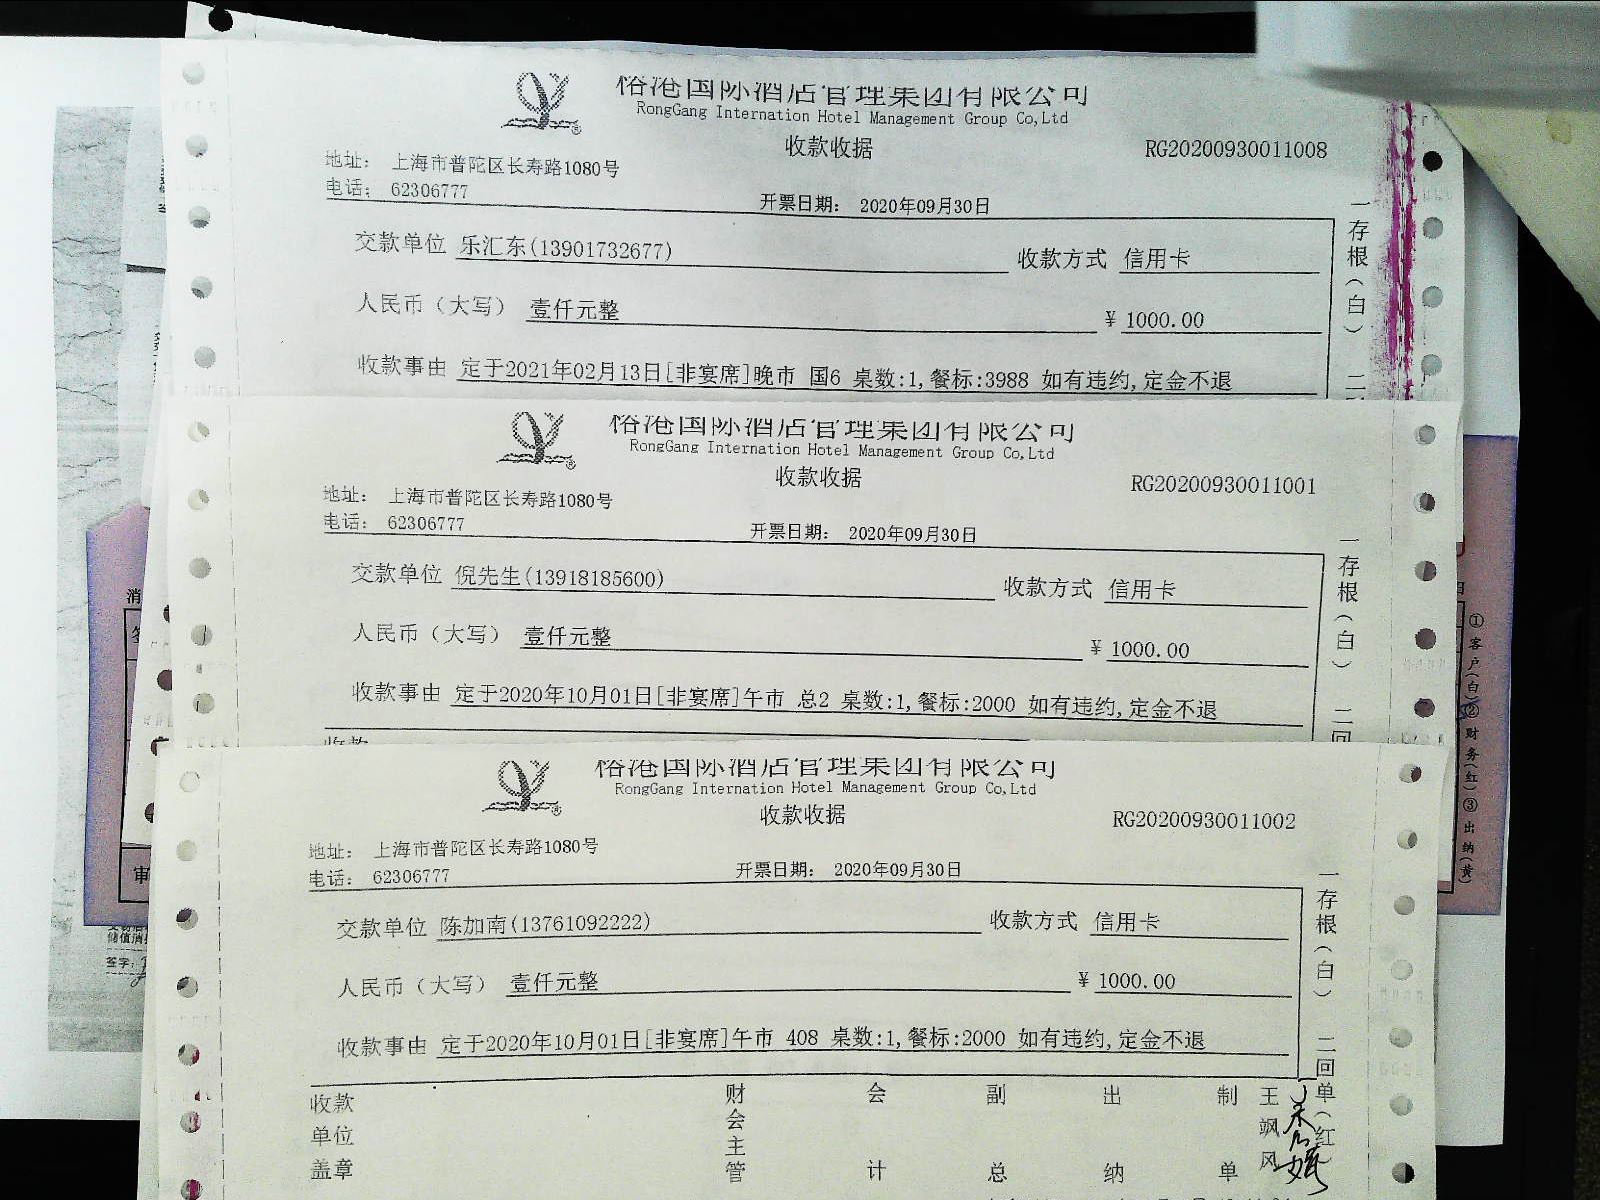 榕港国际酒店管理集团有限公司
RongGang Internation Hotel Management Group Co,Ltd
收款收据
RG20200930011008
地址： 上海市普陀区长寿路1080号
电话： 62306777
开票日期： 2020年09月30日
交款单位 乐汇东(13901732677)
收款方式 信用卡
人民币（大写） 壹仟元整
¥ 1000.00
收款事由 定于2021年02月13日[非宴席]晚市 国6 桌数:1,餐标:3988 如有违约,定金不退
一存根（白） 二
榕港国际酒店管理集团有限公司
RongGang Internation Hotel Management Group Co,Ltd
收款收据
RG20200930011001
地址： 上海市普陀区长寿路1080号
电话： 62306777
开票日期： 2020年09月30日
交款单位 倪先生(13918185600)
收款方式 信用卡
人民币（大写） 壹仟元整
¥ 1000.00
收款事由 定于2020年10月01日[非宴席]午市 总2 桌数:1,餐标:2000 如有违约,定金不退
一存根（白） 二回
收款
榕港国际酒店管理集团有限公司
RongGang Internation Hotel Management Group Co,Ltd
收款收据
RG20200930011002
地址： 上海市普陀区长寿路1080号
电话： 62306777
开票日期： 2020年09月30日
交款单位 陈加南(13761092222)
收款方式 信用卡
人民币（大写） 壹仟元整
¥ 1000.00
收款事由 定于2020年10月01日[非宴席]午市 408 桌数:1,餐标:2000 如有违约,定金不退
一存根（白） 二回单（红）
收款单位盖章
财会主管
会计
副总
出纳
制单
王飒风
①客户(白)②财务(红)③出纳(黄)
消
审
签字: